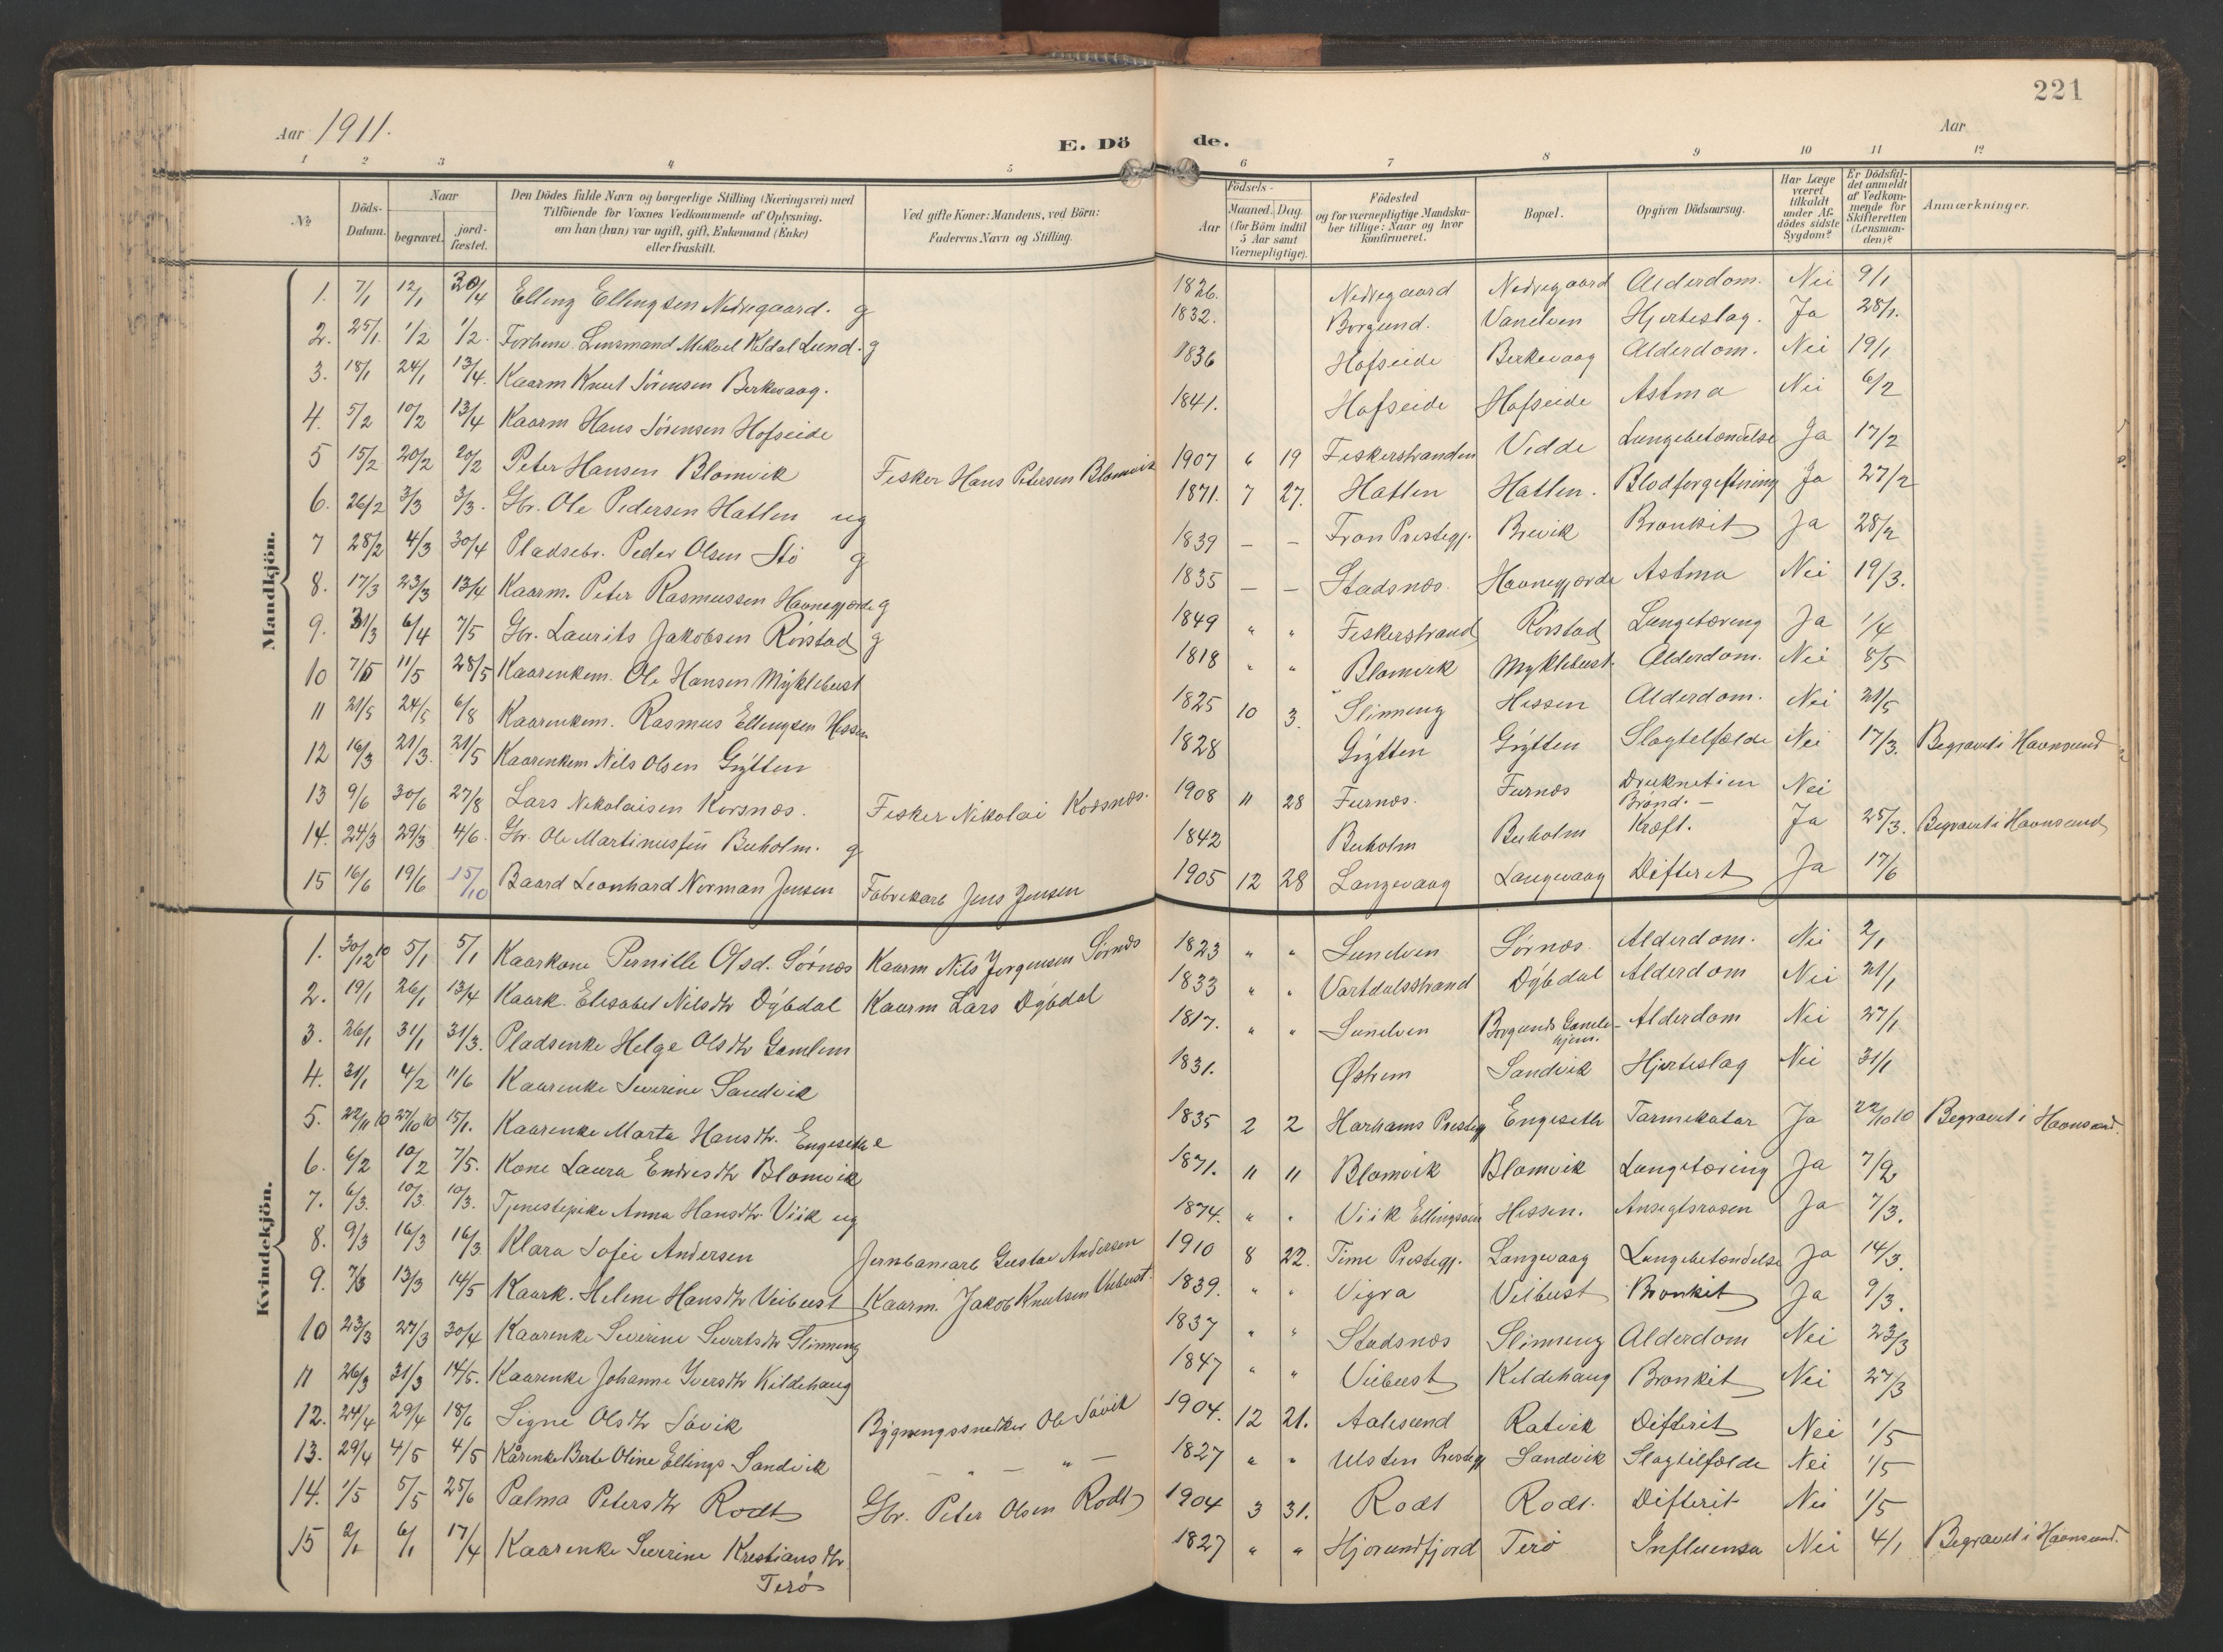 221
Aar 1911. E. Dö de. Aar
1 2 3 4 5 6 7 8 9 10 11 12
№ Döds-Datum. Naar begravet. jord-fæstet. Den Dödes fulde Navn og borgerlige Stilling (Næringsvei) med Tilföiende for Voxnes Vedkommende af Oplysning, om han (hun) var ugift, gift, Enkemand (Enke) eller fraskilt. Ved gifte Koner: Mandens, ved Börn: Faderens Navn og Stilling. Födsels- Aar Maaned. Dag. (for Börn indtil 5 Aar samt Værnepligtige). Födested og for værnepligtige Mandskaber tillige: Naar og hvor konfirmeret. Bopæl. Opgiven Dödsaarsag. Har Læge været tilkaldt under Afdödes sidste Sygdom? Er Dödsfaldet anmeldt af Vedkommende for Skifteretten (Lensmanden)? Anmærkninger.
Mandkjön.
1. 7/1 12/1 30/4 Elling Ellingsen Nedregaard. g 1826. Nedregaard Nedregaard Alderdom. Nei 9/1
2. 25/1. 1/2 1/2. Forhenv. Lensmand Mikael Kildal Lund. g 1832. Borgund. Vanelven Hjerteslag. Ja 28/1.
3. 18/1 24/1 13/4. Kaarm Knut Sörensen Berkevaag. 1836 Hofseide Berkevaag Alderdom. Nei 19/1
4. 5/2 10/2 13/4 Kaarm Hans Sörensen Hofseide 1841. Hofseide Hofseide Astma Nei 6/2
5 15/2 20/2 20/2 Peter Hansen Blomvik Fisker Hans Petersen Blomvik 1907 6 19 Fiskerstranden Vedde Lungebetændelse Ja 17/2
6. 26/2 3/3 3/3. Gbr. Ole Pedersen Hatlen ug 1871. 7 27. Hatlen Hatlen. Blodforgiftning Ja 27/2
7 28/2 4/3 30/4 Pladsebr. Peder Olsen Stö g 1839 — — Fron Prestegj. Brevik Bronkit Ja 28/2
8. 17/3 23/3 13/4 Kaarm. Peter Rasmussen Havnegjærde g 1835 — — Stadsnæs Havnegjærde Astma Nei 19/3.
9. 31/3 6/4 7/5 Gbr. Laurits Jakobsen Rörstad g 1849 " " Fiskerstrand Rörstad Lungetæring Ja 1/4
10 7/5 11/5 28/5 Kaarenkem. Ole Hansen Myklebust 1818 " " Blomvik Myklebust. Alderdom. Nei 8/5
11 21/5 24/5 6/8 Kaarenkem. Rasmus Ellingsen Hessen 1825 10 3. Slinneng Hessen Alderdom. Nei 21/5
12 16/3 21/3. 21/5 Kaarenkem Nils Olsen Grytten 1828 Grytten Grytten Slagtelfælde Nei 17/3. Begravet i Havnsund
13 9/6 30/6 27/8 Lars Nikolaisen Korsnæs. Fisker Nikolai Korsnæs. 1908 11 28 Furnæs. Furnæs Druknet i en Brönd. — Nei
14. 24/3 29/3 4/6. Gbr. Ole Martinussen Buholm. g 1842 Buholm Buholm Kræft. Ja 25/3. Begravet i Havnsund
15 16/6 19/6 15/10 Baard Leonhard Norman Jensen Fabrikarb Jens Jensen 1905 12 28 Langevaag Langevaag Difterit Ja 17/6
Kvindekjön.
1. 30/12 10 5/1 5/1 Kaarkone Pernille Olsd. Sörnæs Kaarm Nils Jørgensen Sörnæs 1823 " " Sunelven Sörnæs. Alderdom. Nei 2/1
2. 19/1 26/1 13/4 Kaark. Elisabet Nilsdtr Dybdal Kaarm Lars Dybdal 1833 " " Vartdalsstrand Dybdal Alderdom Nei 21/1
3. 26/1 31/1 31/3. Pladsenke Helge Olsdtr Gamlem 1817. " " Sunelven Borgunds Gamlehjem. Alderdom Nei 27/1
4. 31/1 4/2 11/6 Kaarenke Severine Sandvik 1831. Østrem Sandvik Hjerteslag Nei 31/1
5. 22/11 10 27/10 10 15/1. Kaarenke Marta Hansdtr. Engeseth e 1835 2 2 Harhams Prestegj Engeseth Tarmkatar Ja 22/10 10 Begravet i Havnsund.
6. 6/2 10/2 7/5. Kone Laura Endresdtr Blomvik 1871. " " Blomvik Blomvik Lungetæring Ja 7/2
7. 6/3. 10/3. 10/3. Tjenestepike Anna Hansdtr. Viik ug 1874. " " Viik Ellingsøen Hessen. Ansigtsrosen Ja 7/3.
8. 9/3 16/3 16/3 Klara Sofie Andersen Jernbanearb Gustav Andersen 1910 8 22. Time Prestegj. Langevaag Lungebetændelse Ja 14/3.
9. 7/3 13/3 14/5 Kaark. Helene Hansdtr Veibust Kaarm. Jakob Knutsen Veibust. 1839. " " Vigra Veibust Bronkit Ja 9/3.
10 23/3 27/3 30/4 Kaarenke Severine Sivertsdtr Slinneng 1837 " " Stadsnæs Slinneng Alderdom Nei 23/3
11 26/3 31/3 14/5. Kaarenke Johanne Iversdtr Kildehaug 1847 " " Veibust Kildehaug Bronkit Nei 27/3
12. 24/4 29/4 18/6 Signe Olsdtr Sövik Bygningssnedker Ole Sövik 1904. 12 21. Aalesund Ratvik Difterit Nei 1/5
13. 29/4 4/5 4/5 Kårenke Berte Oline Ellings Sandvik — " — " — 1827 " " Ulsten Prestegj Sandvik Slagtilfælde Nei 1/5
14. 1/5 5/5 25/6 Palma Petersdtr Rodt Gbr. Peter Olsen Rodt 1904 3 31. Rodt Rodt. Difterit Nei 1/5
15 2/1 6/1 17/4 Kaarenke Severine Kristiansdtr Terö 1827 " " Hjørundfjord Terö Influensa Nei 4/1 Begravet i Havnsund.